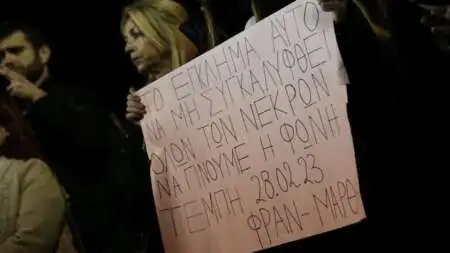 ΤΟ ΕΓΚΛΗΜΑ ΑΥΤΟ
ΝΑ ΜΗ ΣΥΓΚΑΛΥΦΘΕΙ
ΟΛΩΝ ΤΩΝ ΝΕΚΡΩΝ
ΝΑ ΓΙΝΟΥΜΕ Η ΦΩΝΗ
ΤΕΜΠΗ 28.02.23
ΦΡΑΝ-ΜΑΡΘ